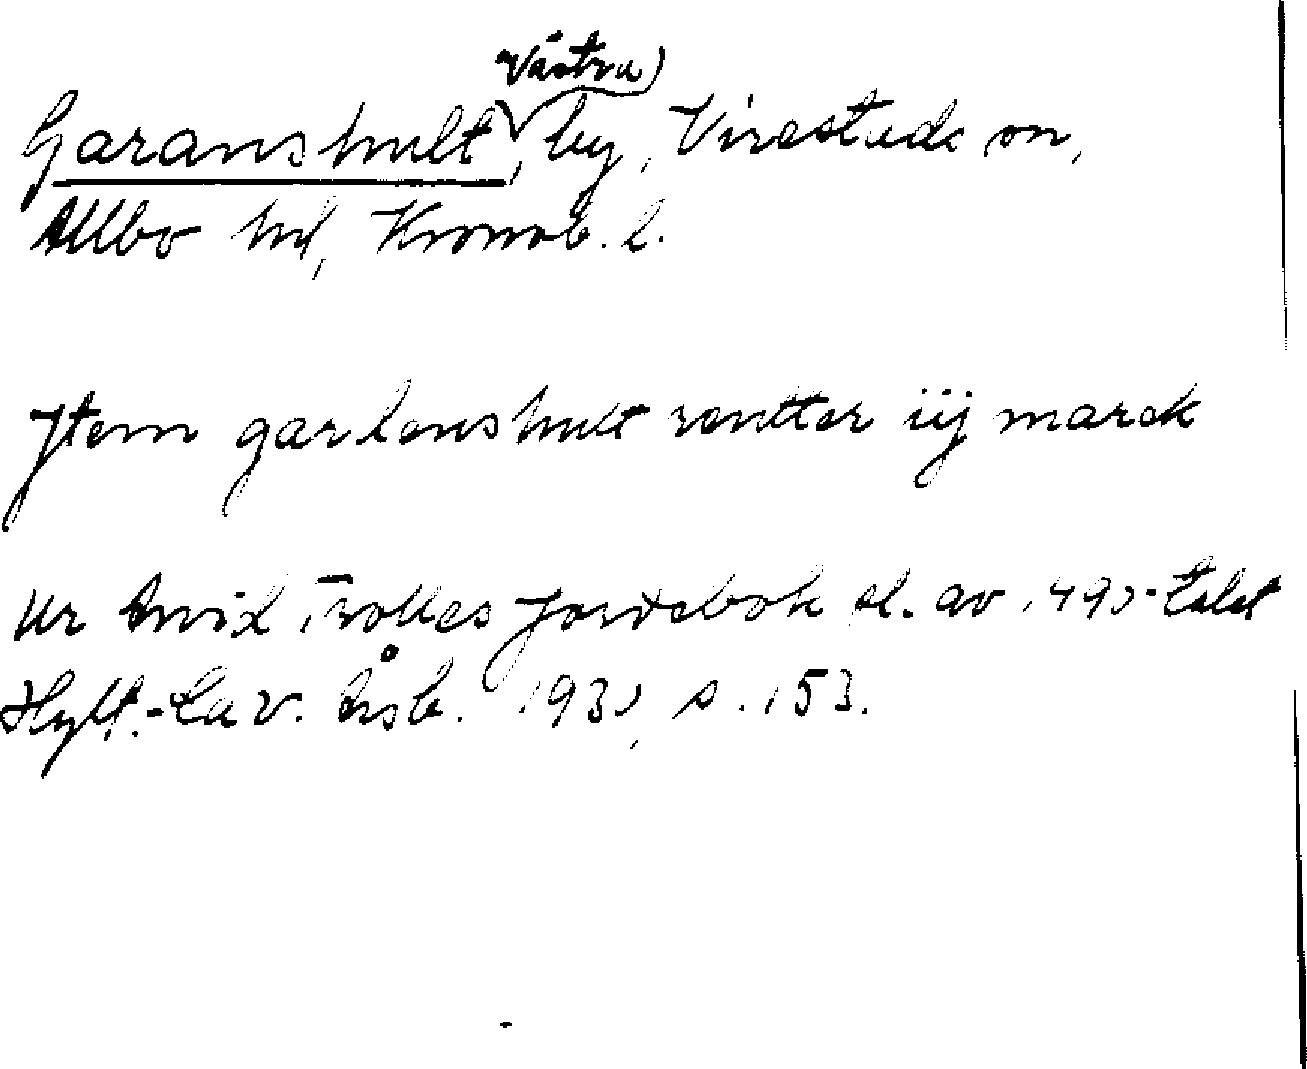 Västra)
Garanshult, by, Virestads sn,
Allbo hd, Kronob. l.
Jtem garlonshult rentter iij marck
Ur Arvid Trolles Jordebok sl. av 1490-talet
Hylt.-Cav. Årsb. 1930, s. 153.